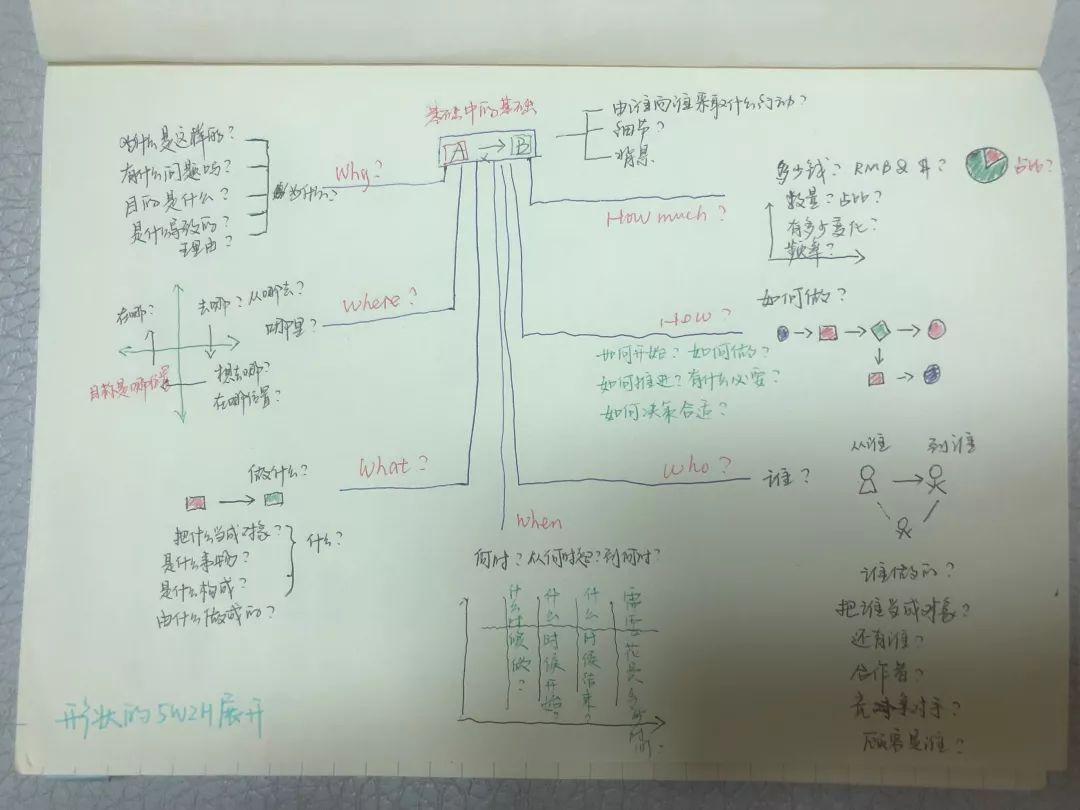 基础中的基础
A → B
由谁向谁采取什么行动？
细节？
消息
Why？
为什么？
为什么是这样的？
有什么问题吗？
目的是什么？
是什么导致的？
理由？
How much？
多少钱？ RMB & $？
占比？
数量？占比？
有多少变化？
频率？
where？
哪里？
在哪？
去哪？从哪去？
想去哪？
在哪位置？
目标是哪位置
How？
如何做？
如何开始？如何做？
如何推进？有什么必要？
如何决策合适？
what？
做什么？
什么？
把什么当成对象？
是什么事物？
是什么构成？
由什么做成的？
who？
谁？
从谁
到谁
谁做的？
把谁当成对象？
还有谁？
合作者？
竞争对手？
顾客是谁？
when
何时？从何时起？到何时？
什么时候做？
什么时候开始？
什么时候结束？
需要花多少时间？
形状的5W2H展开